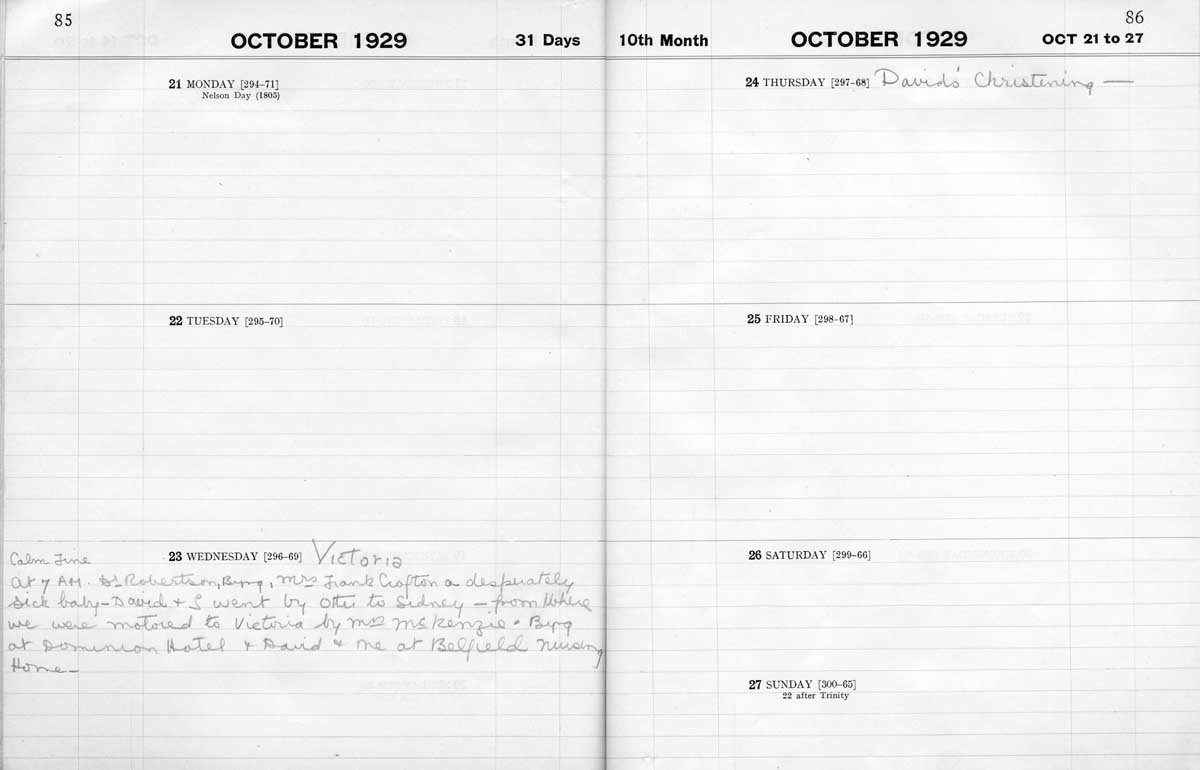 85
OCTOBER 1929 31 Days
21 MONDAY [294–71]
Nelson Day (1805)
22 TUESDAY [295–70]
23 WEDNESDAY [296–69] Victoria
Calm Fine
at 7 AM. Dr Robertson, Byng, Mrs Frank Crofton a desperately
sick baby – David & I went by Otter to Sidney – from where
we were motored to Victoria by Mr McKenzie - Byng
at Dominion Hotel & David & me at Belfield Nursing
Home –
86
10th Month OCTOBER 1929 OCT 21 to 27
24 THURSDAY [297–68] David's Christening —
25 FRIDAY [298–67]
26 SATURDAY [299–66]
27 SUNDAY [300–65]
22 after Trinity